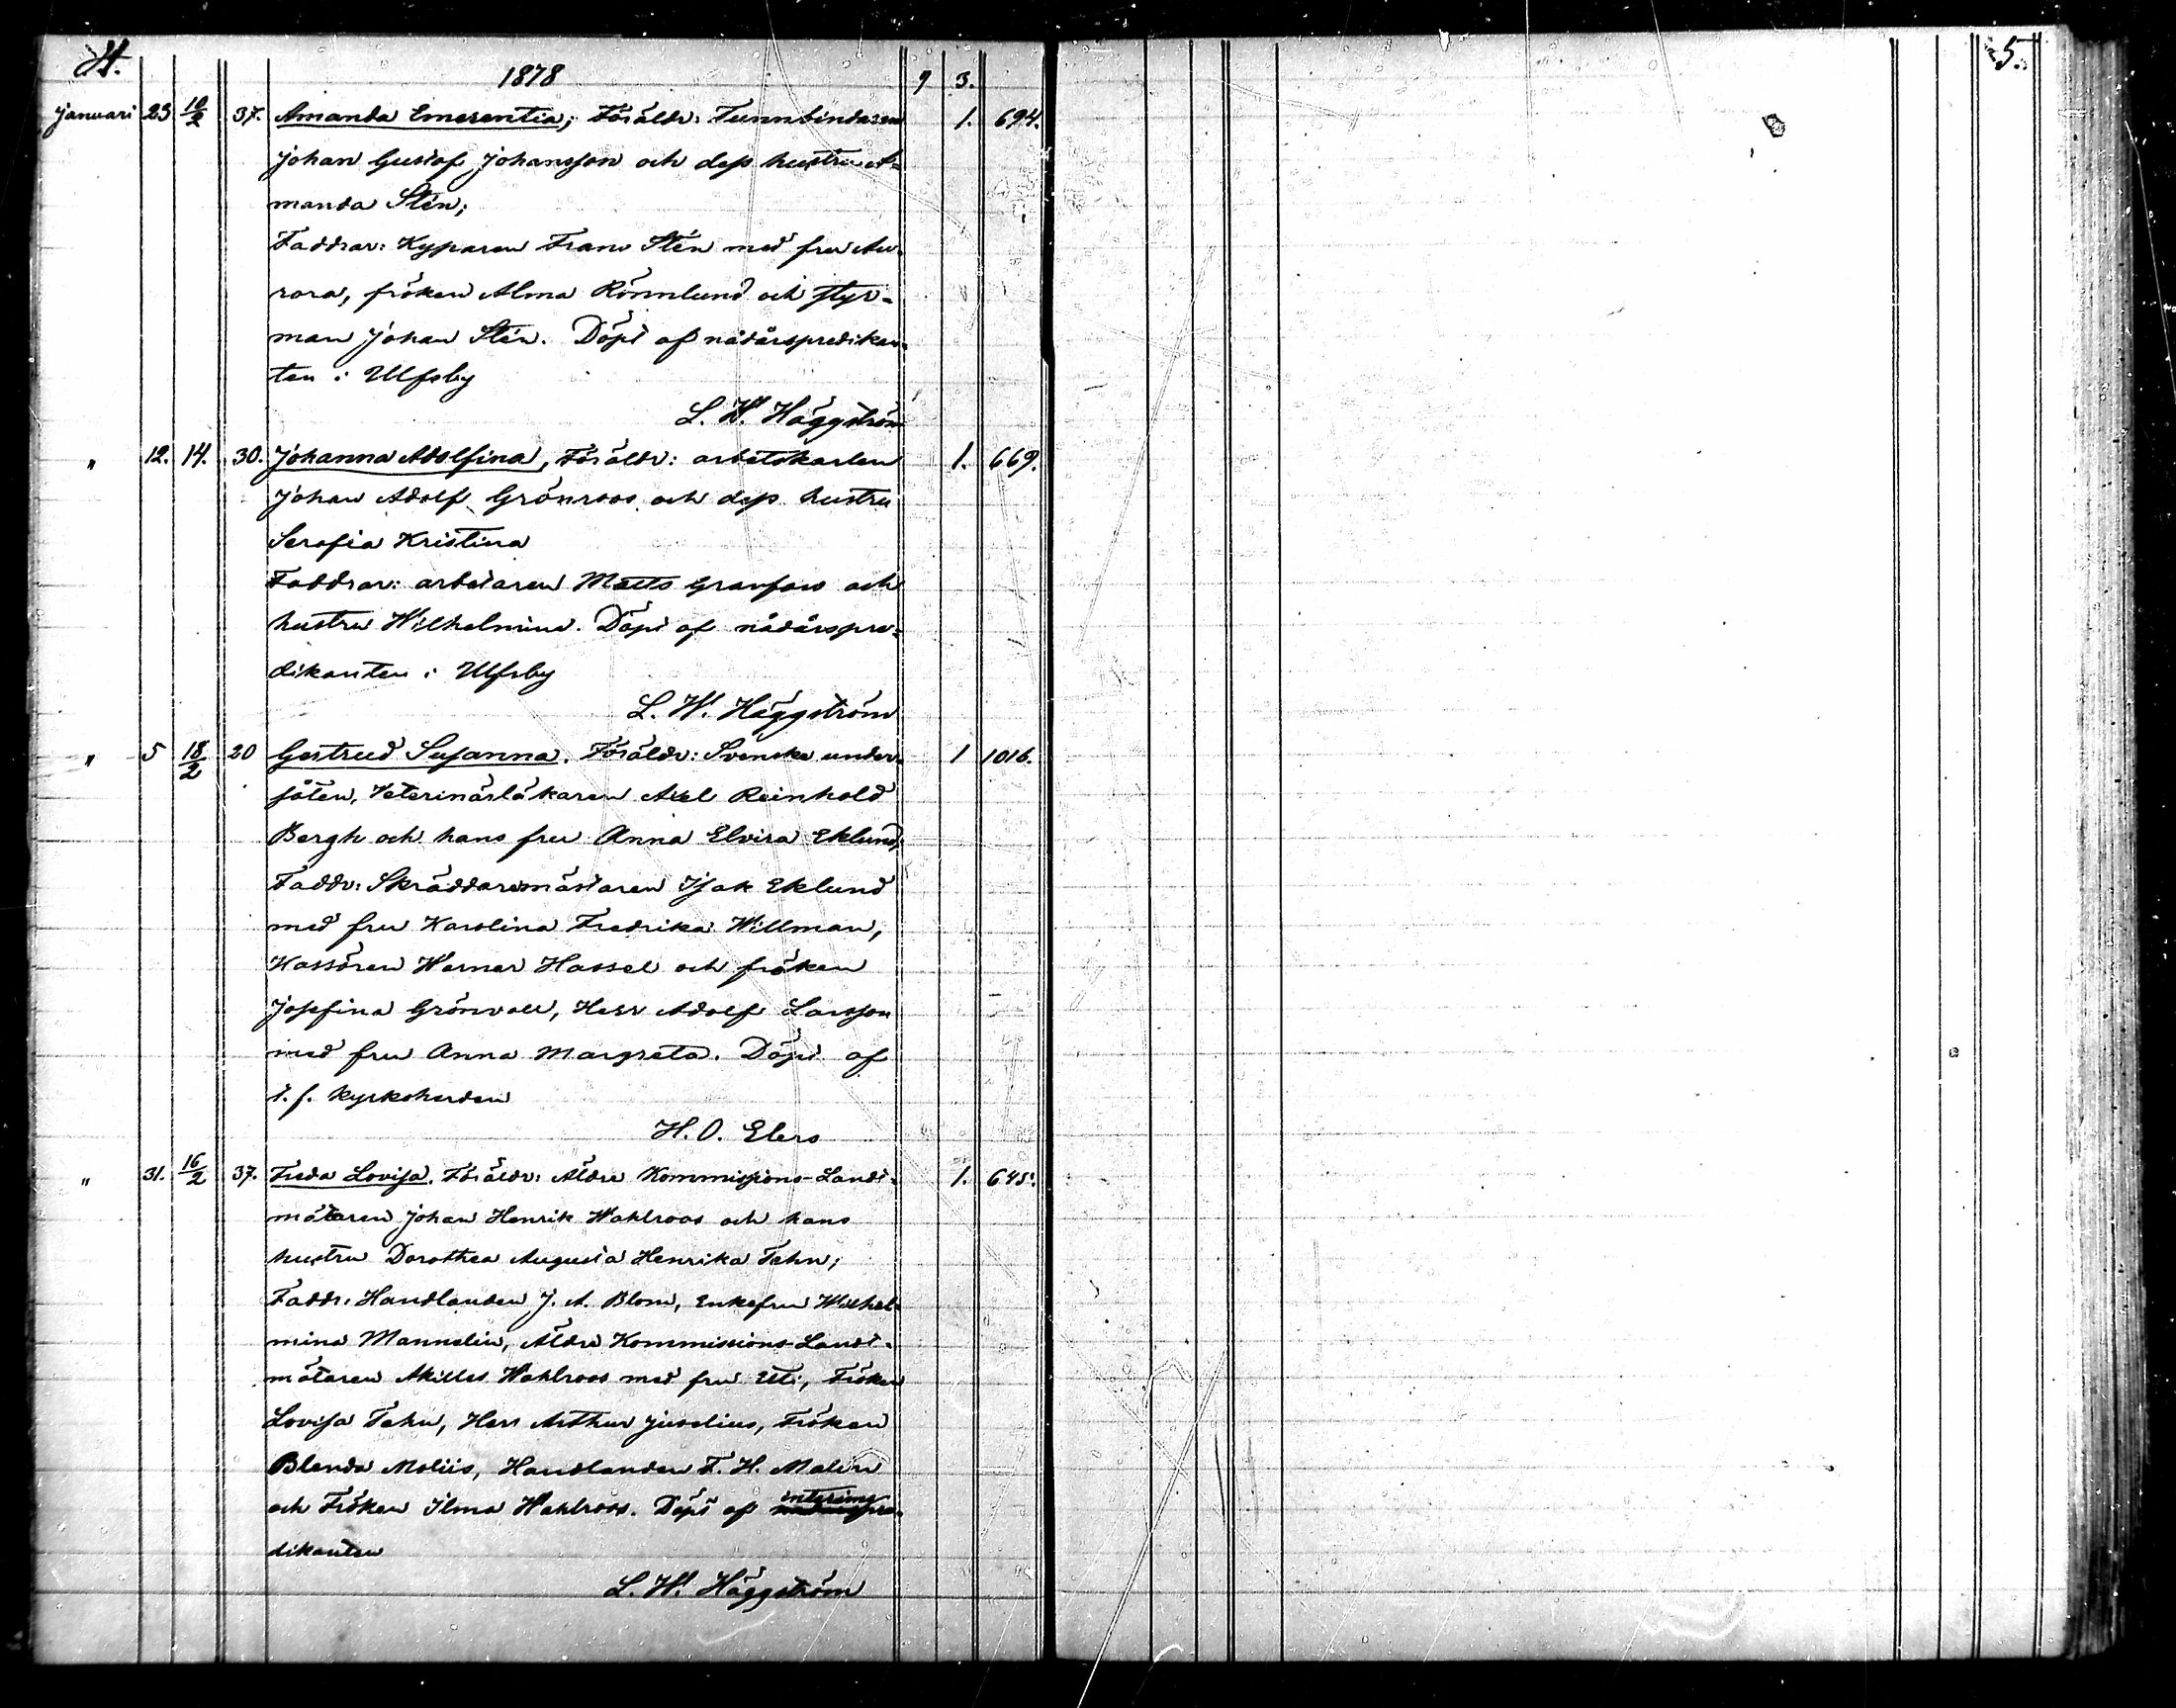 4. 5.
1878 9 3.
Januari 23 10/2 37. Amanda Emerentia; Föräldr: Tunnbindaren 1. 694.
Johan Gustaf Johansson och dess hustru A-
manda Stén;
Faddrar: Kyparen Frans Stén med fru Au-
rora, fröken Alma Rönnlund och styr-
man Johan Stén. Döpt af nådårspredikan-
ten i Ulfsby
L. W. Häggström
" 12. 14. 30. Johanna Adolfina, Föräldr: arbetskarlen 1. 669.
Johan Adolf Grönroos och dess hustru
Serafia Kristina
Faddrar: arbetaren Matts Granfors och
hustru Wilhelmina. Döpt af nådårspre-
dikanten i Ulfsby
L. W. Häggström
" 5 18/2 20 Gertrud Susanna. Föräldr: Svenske under- 1 1016.
såten, Veterinärläkaren Axel Reinhold
Bergh och hans fru Anna Elvira Eklund;
Faddr: Skräddaremästaren Isak Eklund
med fru Karolina Fredrika Willman,
Kassören Werner Hassel och fröken
Josefina Grönvall, Herr Adolf Larsson
med fru Anna Margreta. Döpt af
t. f. Kyrkoherden
H. O. Elers
" 31. 16/2 37. Freda Lovisa. Föräldr: Äldre Kommissions-Landt- 1. 645.
mätaren Johan Henrik Wahlroos och hans
hustru Dorothea Augusta Henrika Tehn;
Faddr: Handlanden J. A. Blom, Enkefru Wilhel-
mina Mannelin, Äldre Kommissions-Landt-
mätaren Akilles Wahlroos med fru Etti, Fröken
Lovisa Tehn, Herr Arthur Juselius, Fröken
Blenda Moliis, Handlanden F. H. Malin
och Fröken Ilma Wahlroos. Döpt af interimspre-
dikanten
L. W. Häggström